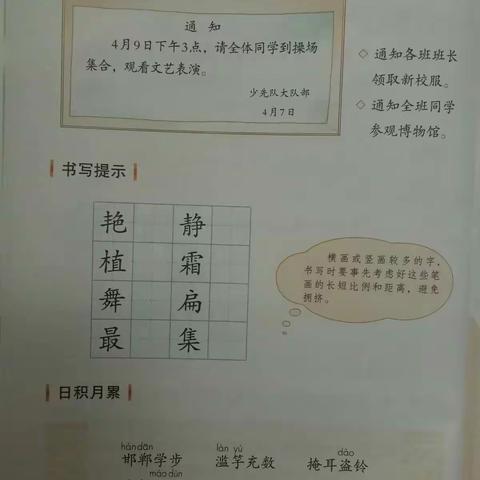 通 知
4月9日下午3点，请全体同学到操场
集合，观看文艺表演。
少先队大队部
4月7日
◇ 通知各班班长
领取新校服。
◇ 通知全班同学
参观博物馆。
书写提示
艳 静
植 霜
舞 扁
最 集
横画或竖画较多的字，
书写时要事先考虑好这些笔
画的长短比例和距离，避免
拥挤。
日积月累
hán dān
làn yú
dào
邯郸学步 滥竽充数 掩耳盗铃
máo dùn